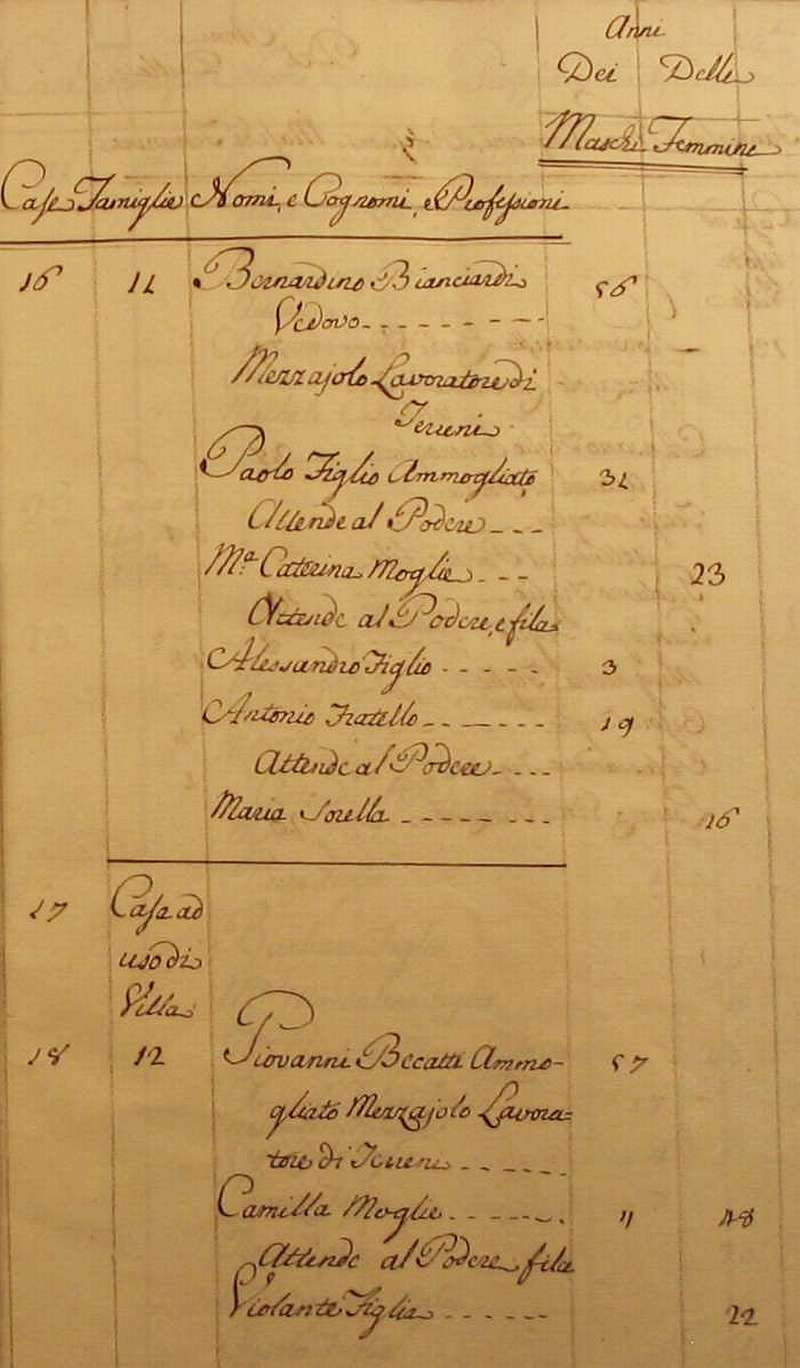 Anni
Dei Delle
Maschi Femmine
Case Famiglie Nomi, e Cognomi, e Professioni
16 11 Bernardino Bianciardi 56
Vedovo
Mezzajolo Lavoratore di
Terreni
Paolo Figlio Ammogliato 31
Attende al Podere
M.a Caterina Moglie 23
Attende al Podere, e fila
Alessandro Figlio 3
Antonio Fratello 19
Attende al Podere
Maria Sorella 16
17 Casa ad
uso di
Villa
18 12 Giovanni Becatti Ammo-
gliato Mezzajolo Lavora=
tore di Terreni 57
Camilla Moglie " 48
Attende al Podere, fila
Violante Figlia 22